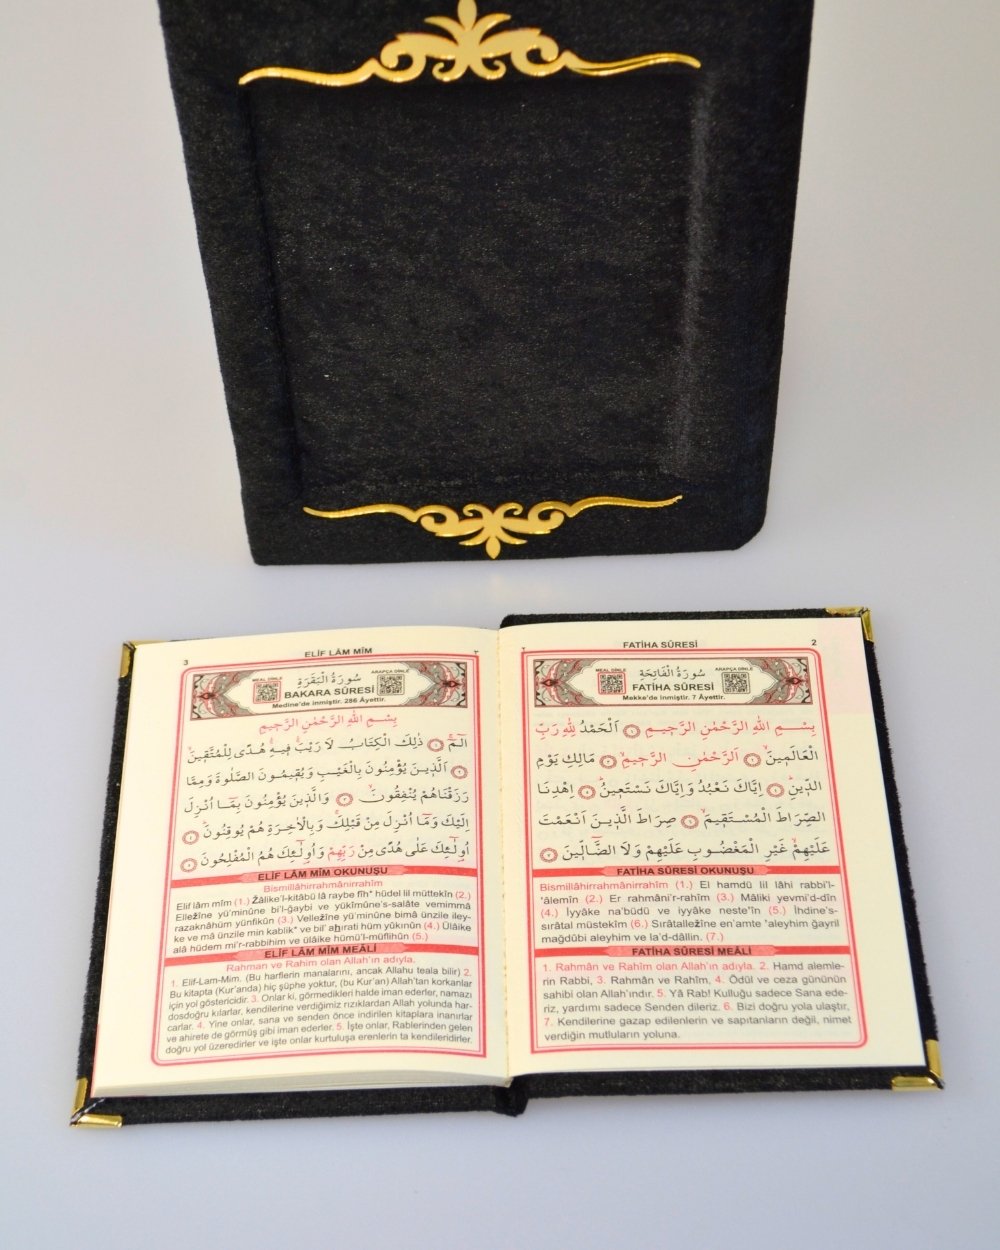 FATİHA SÛRESİ 2
٢
MEAL DİNLE
ARAPÇA DİNLE
سُورَةُ الْفَاتِحَةِ
FATİHA SÛRESİ
Mekke'de inmiştir. 7 Âyettir.
بِسْمِ اللّٰهِ الرَّحْمٰنِ الرَّحِيمِ ﴿١﴾ اَلْحَمْدُ لِلّٰهِ رَبِّ
الْعَالَمِينَ ﴿٢﴾ اَلرَّحْمٰنِ الرَّحِيمِ ﴿٣﴾ مَالِكِ يَوْمِ
الدِّينِ ﴿٤﴾ اِيَّاكَ نَعْبُدُ وَاِيَّاكَ نَسْتَعِينُ ﴿٥﴾ اِهْدِنَا
الصِّرَاطَ الْمُسْتَقِيمَ ﴿٦﴾ صِرَاطَ الَّذِينَ اَنْعَمْتَ
عَلَيْهِمْ غَيْرِ الْمَغْضُوبِ عَلَيْهِمْ وَلَا الضَّٓالِّينَ ﴿٧﴾
FATİHA SÛRESİ OKUNUŞU
Bismillâhirrahmânirrahîm (1.) El hamdü lil lâhi rabbi'l-
'âlemîn (2.) Er rahmâni'r-rahîm (3.) Mâliki yevmi'd-dîn
(4.) İyyâke na'büdü ve iyyâke neste'în (5.) İhdine's-
sırâtal müstekîm (6.) Sırâtalležîne en'amte 'aleyhim ğayril
mağdûbi aleyhim ve la'd-dâllin. (7.)
FATİHA SÛRESİ MEÂLİ
1. Rahmân ve Rahîm olan Allah'ın adıyla. 2. Hamd alemle-
rin Rabbi, 3. Rahmân ve Rahîm, 4. Ödül ve ceza gününün
sahibi olan Allah'ındır. 5. Yâ Rab! Kulluğu sadece Sana ede-
riz, yardımı sadece Senden dileriz. 6. Bizi doğru yola ulaştır,
7. Kendilerine gazap edilenlerin ve sapıtanların değil, nimet
verdiğin mutluların yoluna.
3 ELİF LÂM MÎM ٣
MEAL DİNLE
ARAPÇA DİNLE
سُورَةُ الْبَقَرَةِ
BAKARA SÛRESİ
Medine'de inmiştir. 286 Âyettir.
بِسْمِ اللّٰهِ الرَّحْمٰنِ الرَّحِيمِ
الٓمٓ ﴿١﴾ ذٰلِكَ الْكِتَابُ لَا رَيْبَ فِيهِ هُدًى لِلْمُتَّقِينَ
﴿٢﴾ اَلَّذِينَ يُؤْمِنُونَ بِالْغَيْبِ وَيُقِيمُونَ الصَّلٰوةَ وَمِمَّا
رَزَقْنَاهُمْ يُنْفِقُونَ ﴿٣﴾ وَالَّذِينَ يُؤْمِنُونَ بِمَٓا اُنْزِلَ
اِلَيْكَ وَمَٓا اُنْزِلَ مِنْ قَبْلِكَ وَبِالْاٰخِرَةِ هُمْ يُوقِنُونَ ﴿٤﴾
اُولٰٓئِكَ عَلٰى هُدًى مِنْ رَبِّهِمْ وَاُولٰٓئِكَ هُمُ الْمُفْلِحُونَ ﴿٥﴾
ELİF LÂM MÎM OKUNUŞU
Bismillâhirrahmânirrahîm
Elif lâm mîm (1.) Žâlike'l-kitâbü lâ raybe fîh* hüdel lil müttekîn (2.)
Elležîne yü'minûne bi'l-ğaybi ve yükîmûne's-salâte vemimmâ
razaknâhüm yünfikûn (3.) Velležîne yü'minûne bimâ ünzile iley-
ke ve mâ ünzile min kablik* ve bil' aḣırati hüm yûkınûn (4.) Ülâike
alâ hüdem mi'r-rabbihim ve ülâike hümü'l-müflihûn (5.)
ELİF LÂM MÎM MEÂLİ
Rahman ve Rahim olan Allah'ın adıyla.
1. Elif-Lam-Mim. (Bu harflerin manalarını, ancak Allahu teala bilir) 2.
Bu kitapta (Kur'anda) hiç şüphe yoktur, (bu Kur'an) Allah'tan korkanlar
için yol göstericidir. 3. Onlar ki, görmedikleri halde iman ederler, namazı
dosdoğru kılarlar, kendilerine verdiğimiz rızıklardan Allah yolunda har-
carlar. 4. Yine onlar, sana ve senden önce indirilen kitaplara inanırlar
ve ahirete de görmüş gibi iman ederler. 5. İşte onlar, Rablerinden gelen
doğru yol üzeredirler ve işte onlar kurtuluşa erenlerin ta kendileridirler.